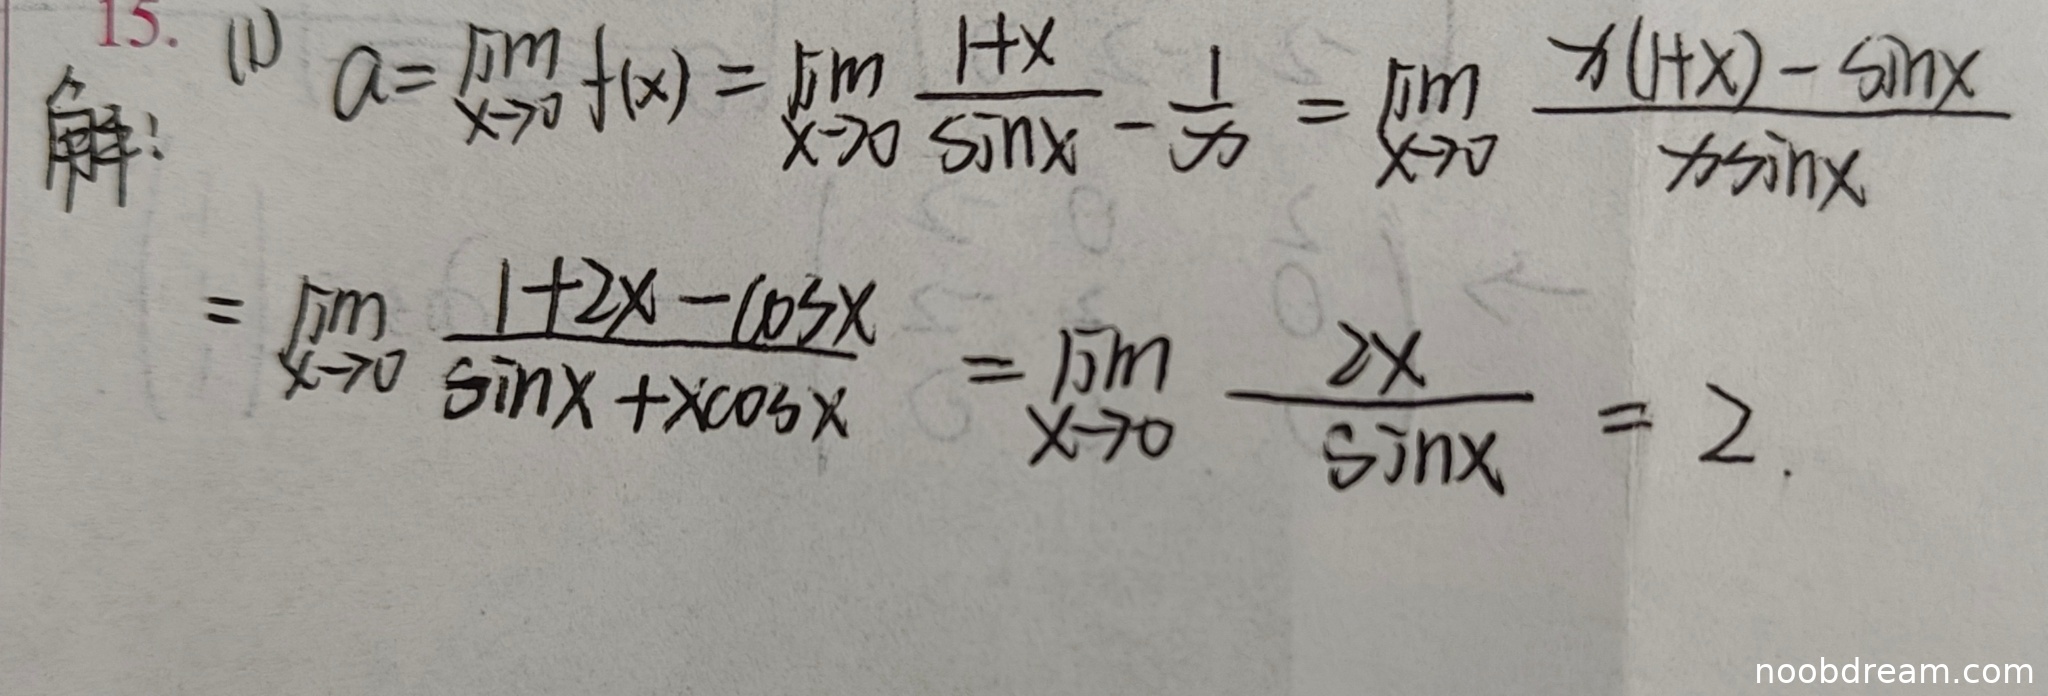 15. (1) a = lim x→0 f(x) = lim x→0 (1+x)/(sinx) - 1/x = lim x→0 (x(1+x) - sinx)/(xsinx)
解:
= lim x→0 (1+2x-cosx)/(sinx+xcosx) = lim x→0 (2x)/(sinx) = 2.
noobdream.com